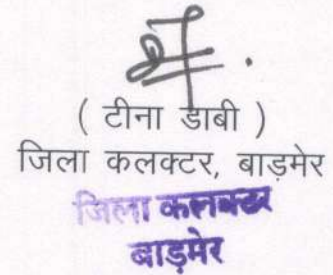 ( टीना डाबी )
जिला कलक्टर, बाड़मेर
जिला कलक्टर
बाड़मेर